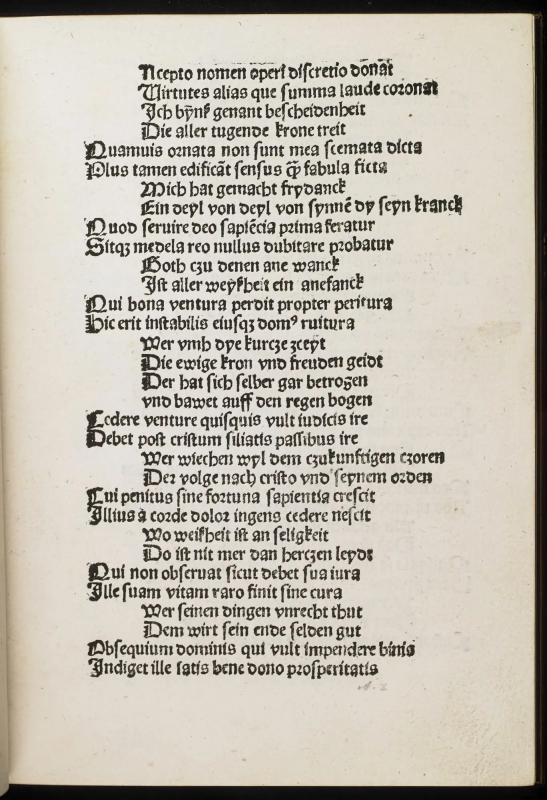 Ncepto nomen operi discretio donāt
Virtutes alias que summa laude coronat
Ich bynß genant bescheidenheit
Die aller tugende krone treit
Quamuis ornata non sunt mea scemata dicta
Plus tamen edificāt sensus q̄ȝ fabula ficta
Mich hat gemacht frydanck
Ein deyl von deyl von synnē dy seyn kranck
Quod seruire deo sapiēcia prima feratur
Sitqȝ medela reo nullus dubitare probatur
Goth czu denen ane wanck
Ist aller weyßheit ein anefanck
Qui bona ventura perdit propter peritura
Hic erit instabilis eiusqȝ domꝰ ruitura
Wer vmb dye kurcze zceyt
Die ewige kron vnd freuden geidt
Der hat sich selber gar betrogen
vnd bawet auff den regen bogen
Cedere venture quisquis vult iudicis ire
Debet post cristum siliatis passibus ire
Wer wiechen wyl dem czukunftigen czoren
Der volge nach cristo vnd seynem orden
Cui penitus sine fortuna sapientia crescit
Illius a corde dolor ingens cedere nescit
Wo weißheit ist an seligkeit
Do ist nit mer dan herczen leydt
Qui non obseruat sicut debet sua iura
Ille suam vitam raro finit sine cura
Wer seinen dingen vnrecht thut
Dem wirt sein ende selden gut
Obsequium dominis qui vult impendere binis
Indiget ille satis bene dono prosperitatis